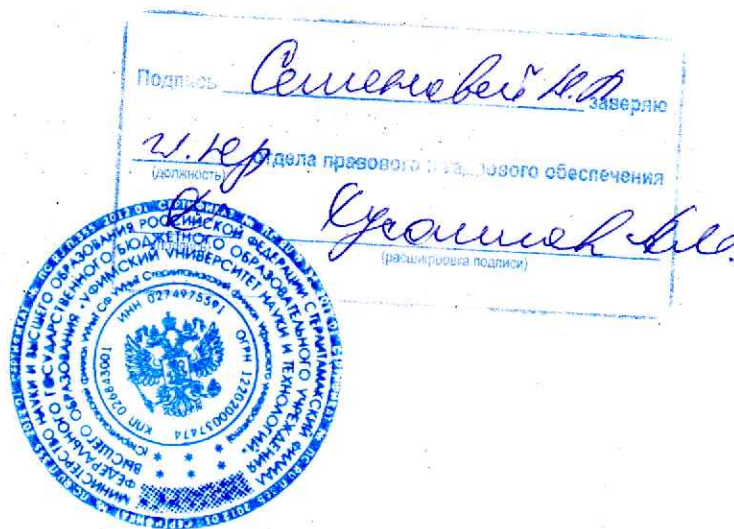 Подпись Семеновой Н.Ф. заверяю
отдела правового и кадрового обеспечения
(должность)
(расшифровка подписи)
МИНИСТЕРСТВО НАУКИ И ВЫСШЕГО ОБРАЗОВАНИЯ РОССИЙСКОЙ ФЕДЕРАЦИИ СТЕРЛИТАМАКСКИЙ ФИЛИАЛ
ФЕДЕРАЛЬНОГО ГОСУДАРСТВЕННОГО БЮДЖЕТНОГО ОБРАЗОВАТЕЛЬНОГО УЧРЕЖДЕНИЯ
ВЫСШЕГО ОБРАЗОВАНИЯ «УФИМСКИЙ УНИВЕРСИТЕТ НАУКИ И ТЕХНОЛОГИЙ»
КПП 026843001 ИНН 0274975591 ОГРН 1220200037474